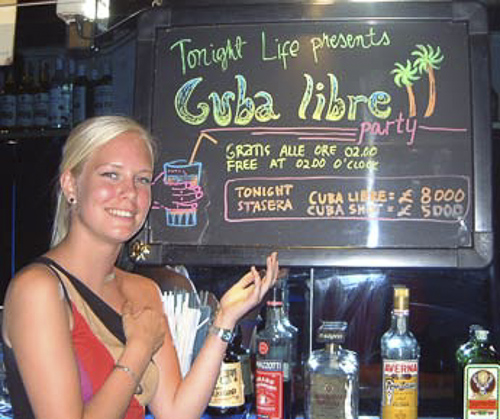 Tonight Life presents
Cuba libre
party
GRATIS ALLE ORE 02.00
FREE AT 02.00 O'CLOCK
TONIGHT CUBA LIBRE = £ 8000
STASERA CUBA SHOT = £ 5000
AVERNA